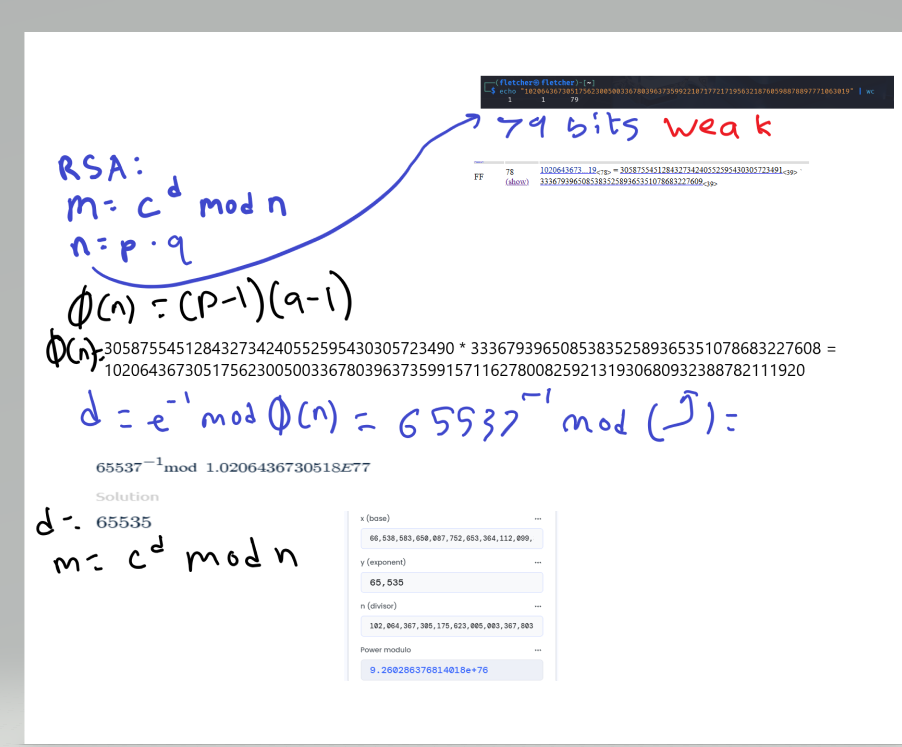 (fletcher㉿fletcher)-[~]
$ echo "1020643673051756230050033678039637359922107177217195632187605988788977710630​19" | wc
1 1 79
79 bits weak
FF 78 (show) 1020643673...19<78> = 305875545128432734240552595430305723491<39> ·
333679396508538352589365351078683227609<39>
RSA:
m = c^d mod n
n = p · q
Φ(n) = (p-1)(q-1)
Φ(n)=305875545128432734240552595430305723490 * 333679396508538352589365351078683227608 =
102064367305175623005003367803963735991571162780082592131930680932388782111920
d = e^-1 mod Φ(n) = 65537^-1 mod ( ) =
65537^−1 mod 1.0206436730518E77
Solution
d = 65535
m = c^d mod n
x (base) ...
66,538,583,650,087,752,653,364,112,099,
y (exponent) ...
65,535
n (divisor) ...
102,064,367,305,175,623,005,003,367,803
Power modulo ...
9.260286376814018e+76